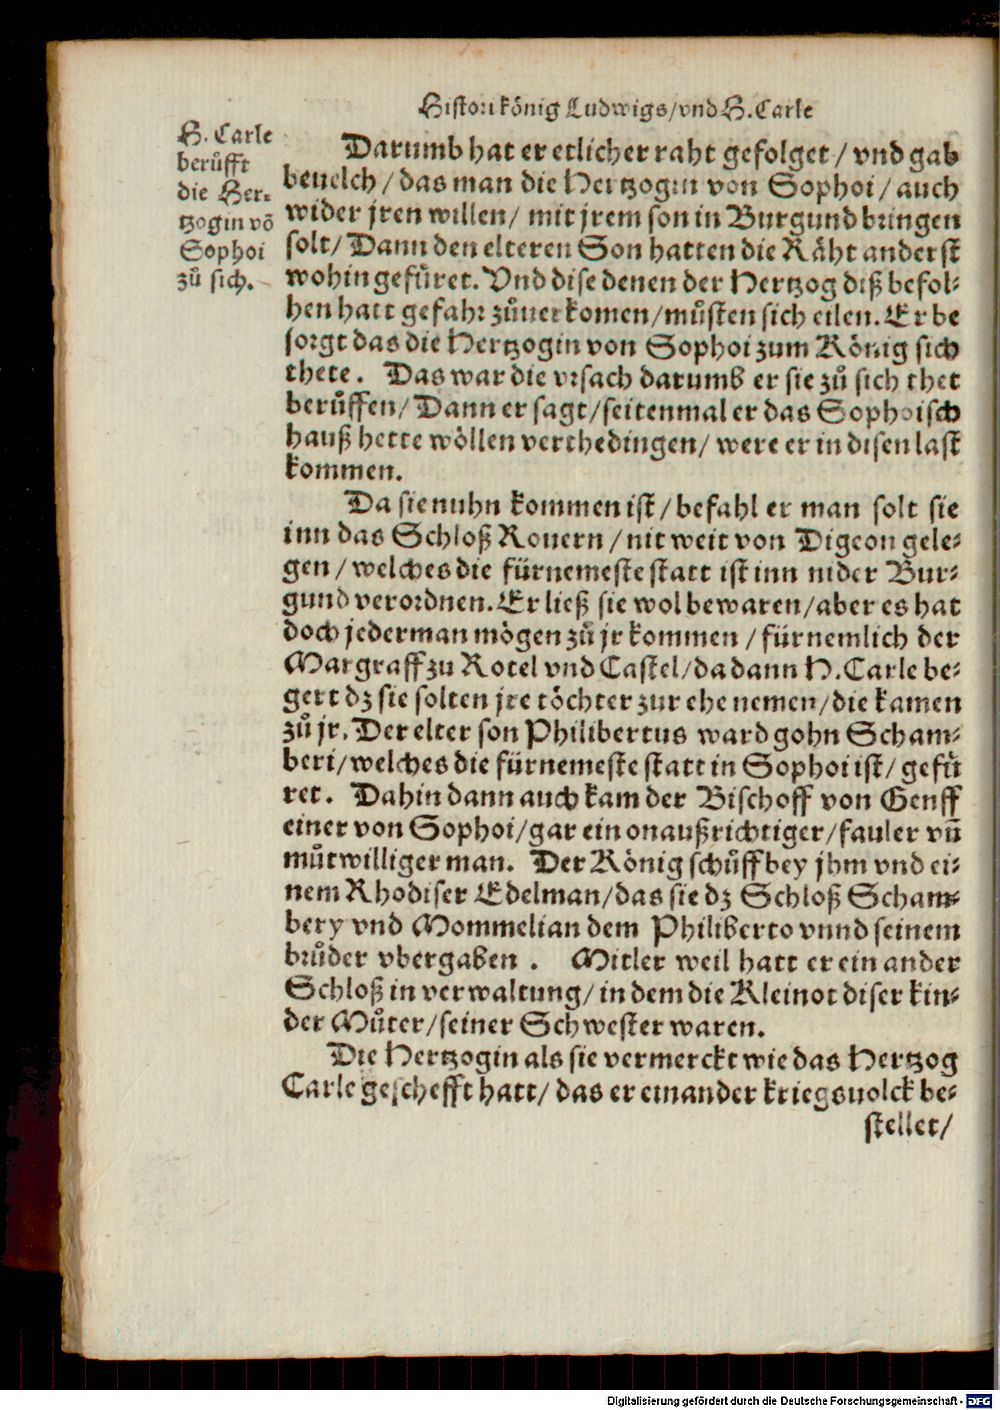 Histori könig Ludwigs/vnd H. Carle
H. Carle
berůfft
die Her-
tzogin võ
Sophoi
zů sich.
Darumb hat er etlicher raht gefolget / vnd gab
beuelch / das man die Hertzogin von Sophoi / auch
wider jren willen / mit jrem son in Burgund bringen
solt / Dann den elteren Son hatten die Räht anderst
wohin gefüret. Vnd dise denen der Hertzog diß befol-
hen hatt gefahr zůuerkomen / můsten sich eilen. Er be
sorgt das die Hertzogin von Sophoi zum König sich
thete. Das war die vrsach darumb er sie zů sich thet
berůffen / Dann er sagt / seitenmal er das Sophoisch
hauß hette wöllen verthedingen / were er in disen last
kommen.
Da sie nuhn kommen ist / befahl er man solt sie
inn das Schloß Rouern / nit weit von Digeon gele-
gen / welches die fürnemeste statt ist inn nider Bur-
gund verordnen. Er ließ sie wol bewaren / aber es hat
doch jederman mögen zů jr kommen / fürnemlich der
Margraff zu Rotel vnd Castel / da dann H. Carle be-
gert dz sie solten jre töchter zur ehe nemen / die kamen
zů jr. Der elter son Philibertus ward gohn Scham-
beri / welches die fürnemeste statt in Sophoi ist / gefü
ret. Dahin dann auch kam der Bischoff von Genff
einer von Sophoi / gar ein onaußrichtiger / fauler vñ
můtwilliger man. Der König schůff bey jhm vnd ei-
nem Rhodiser Edelman / das sie dz Schloß Scham-
bery vnd Mommelian dem Philiberto vnnd seinem
brůder vbergaben . Mitler weil hatt er ein ander
Schloß in verwaltung / in dem die Kleinot diser kin-
der Můter / seiner Schwester waren.
Die Hertzogin als sie vermerckt wie das Hertzog
Carle geschefft hatt / das er ein ander kriegsuolck be-
stellet /
Digitalisierung gefördert durch die Deutsche Forschungsgemeinschaft - DFG